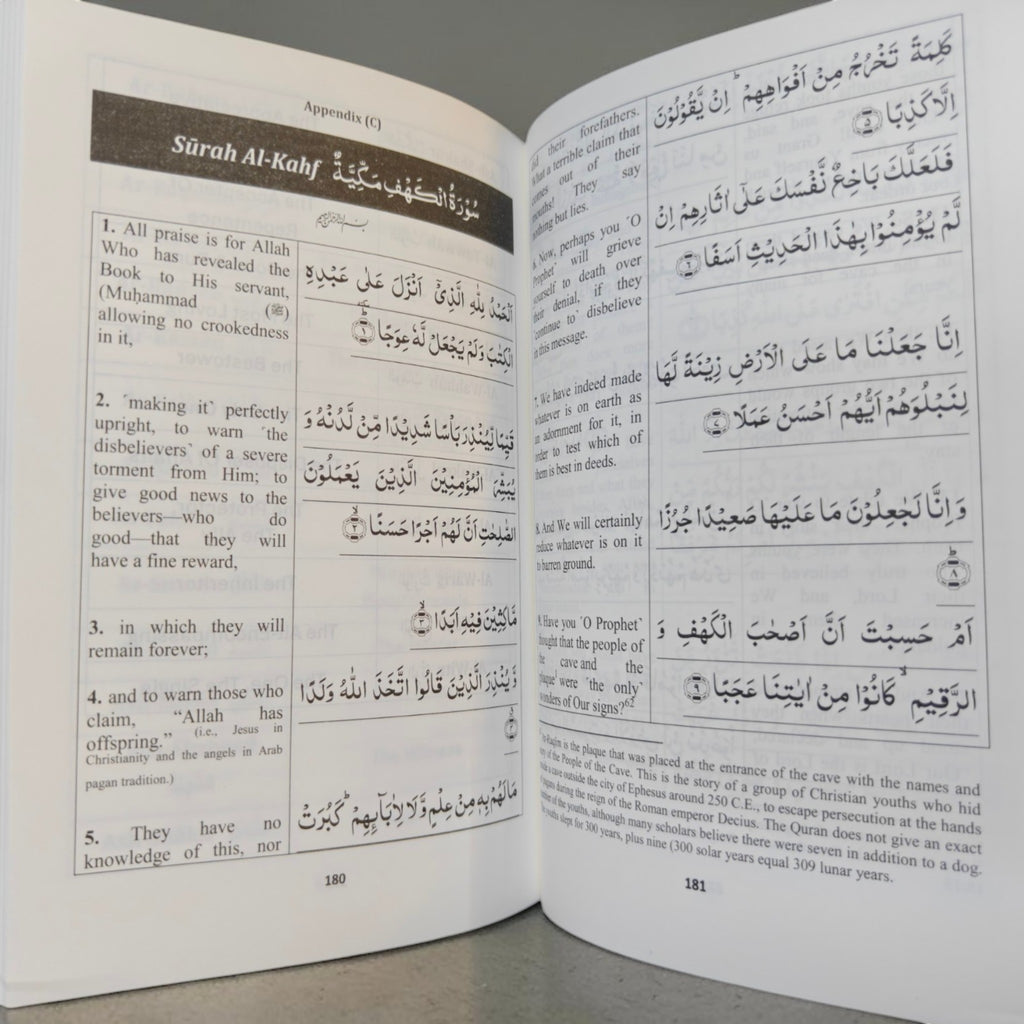 Appendix (C)
Sūrah Al-Kahf سُوْرَةُ الْكَهْفِ مَكِّيَّةٌ
1. All praise is for Allah
Who has revealed the
Book to His servant,
(Muḥammad (ﷺ)
allowing no crookedness
in it,
اَلْحَمْدُ لِلّٰهِ الَّذِيْٓ اَنْزَلَ عَلٰى عَبْدِهِ
الْكِتٰبَ وَلَمْ يَجْعَلْ لَّهٗ عِوَجًا ۝١
2. ˹making it˺ perfectly
upright, to warn ˹the
disbelievers˺ of a severe
torment from Him; to
give good news to the
believers—who do
good—that they will
have a fine reward,
قَيِّمًا لِّيُنْذِرَ بَاْسًا شَدِيْدًا مِّنْ لَّدُنْهُ وَ
يُبَشِّرَ الْمُؤْمِنِيْنَ الَّذِيْنَ يَعْمَلُوْنَ
الصّٰلِحٰتِ اَنَّ لَهُمْ اَجْرًا حَسَنًا ۝٢
3. in which they will
remain forever;
مَّاكِثِيْنَ فِيْهِ اَبَدًا ۝٣
4. and to warn those who
claim, “Allah has
offspring.” (i.e., Jesus in
Christianity and the angels in Arab
pagan tradition.)
وَّيُنْذِرَ الَّذِيْنَ قَالُوا اتَّخَذَ اللّٰهُ وَلَدًا
۝٤
5. They have no
knowledge of this, nor
مَا لَهُمْ بِهٖ مِنْ عِلْمٍ وَّلَا لِاٰبَآىِٕهِمْ ؕ كَبُرَتْ
180
did their forefathers.
What a terrible claim that
comes out of their
mouths! They say
nothing but lies.
كَلِمَةً تَخْرُجُ مِنْ اَفْوَاهِهِمْ ؕ اِنْ يَّقُوْلُوْنَ
اِلَّا كَذِبًا ۝٥
6. Now, perhaps you ˹O
Prophet˺ will grieve
yourself to death over
their denial, if they
˹continue to˺ disbelieve
in this message.
فَلَعَلَّكَ بَاخِعٌ نَّفْسَكَ عَلٰٓى اٰثَارِهِمْ اِنْ
لَّمْ يُؤْمِنُوْا بِهٰذَا الْحَدِيْثِ اَسَفًا ۝٦
7. We have indeed made
whatever is on earth as
an adornment for it, in
order to test which of
them is best in deeds.
اِنَّا جَعَلْنَا مَا عَلَى الْاَرْضِ زِيْنَةً لَّهَا
لِنَبْلُوَهُمْ اَيُّهُمْ اَحْسَنُ عَمَلًا ۝٧
8. And We will certainly
reduce whatever is on it
to barren ground.
وَ اِنَّا لَجٰعِلُوْنَ مَا عَلَيْهَا صَعِيْدًا جُرُزًا
۝٨
9. Have you ˹O Prophet˺
thought that the people of
the cave and the
plaque˺ were ˹the only˺
wonders of Our signs?62
اَمْ حَسِبْتَ اَنَّ اَصْحٰبَ الْكَهْفِ وَ
الرَّقِيْمِ ۙ كَانُوْا مِنْ اٰيٰتِنَا عَجَبًا ۝٩
Raqīm is the plaque that was placed at the entrance of the cave with the names and
of the People of the Cave. This is the story of a group of Christian youths who hid
a cave outside the city of Ephesus around 250 C.E., to escape persecution at the hands
pagans during the reign of the Roman emperor Decius. The Quran does not give an exact
of the youths, although many scholars believe there were seven in addition to a dog.
slept for 300 years, plus nine (300 solar years equal 309 lunar years.
181